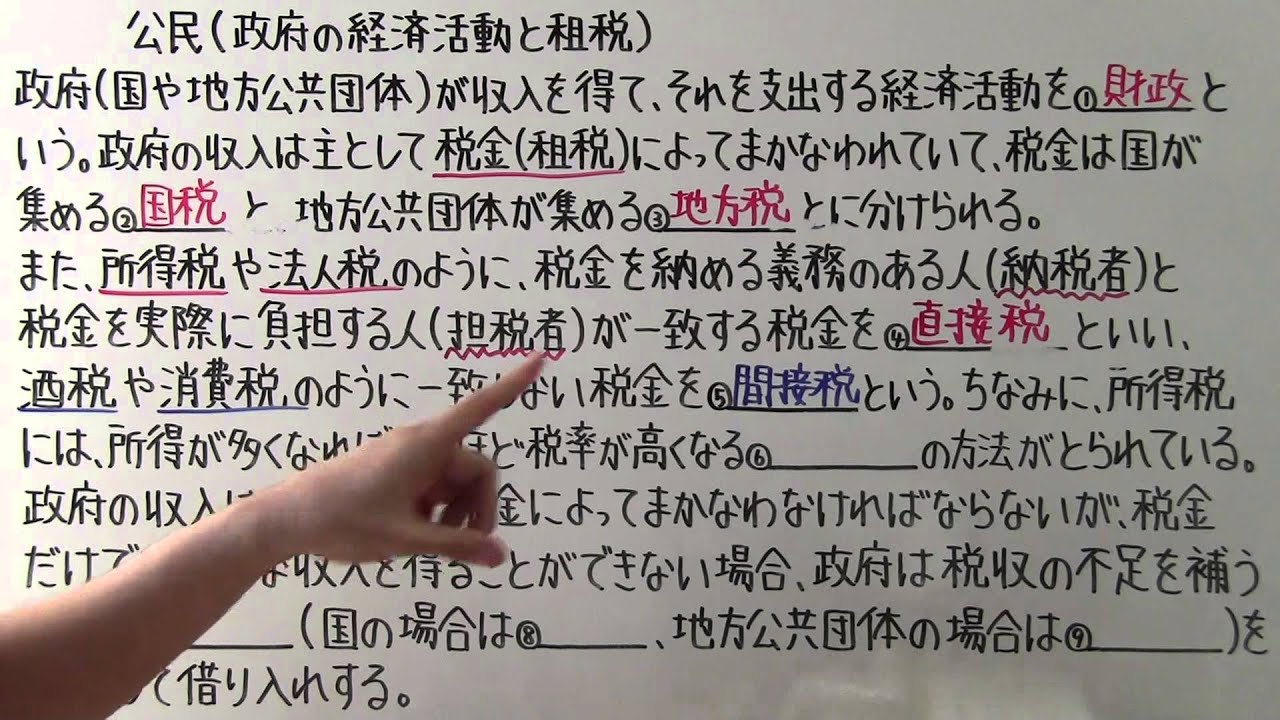 公民(政府の経済活動と租税)
政府(国や地方公共団体)が収入を得て、それを支出する経済活動を①財政と
いう。政府の収入は主として税金(租税)によってまかなわれていて、税金は国が
集める②国税と 地方公共団体が集める③地方税とに分けられる。
また、所得税や法人税のように、税金を納める義務のある人(納税者)と
税金を実際に負担する人(担税者)が一致する税金を④直接税といい、
酒税や消費税のように一致しない税金を⑤間接税という。ちなみに、所得税
には、所得が多くなれば ほど税率が高くなる⑥______の方法がとられている。
政府の収入は 金によってまかなわなければならないが、税金
だけで な収入を得ることができない場合、政府は税収の不足を補う
______(国の場合は⑧______、地方公共団体の場合は⑨______)を
て借り入れする。